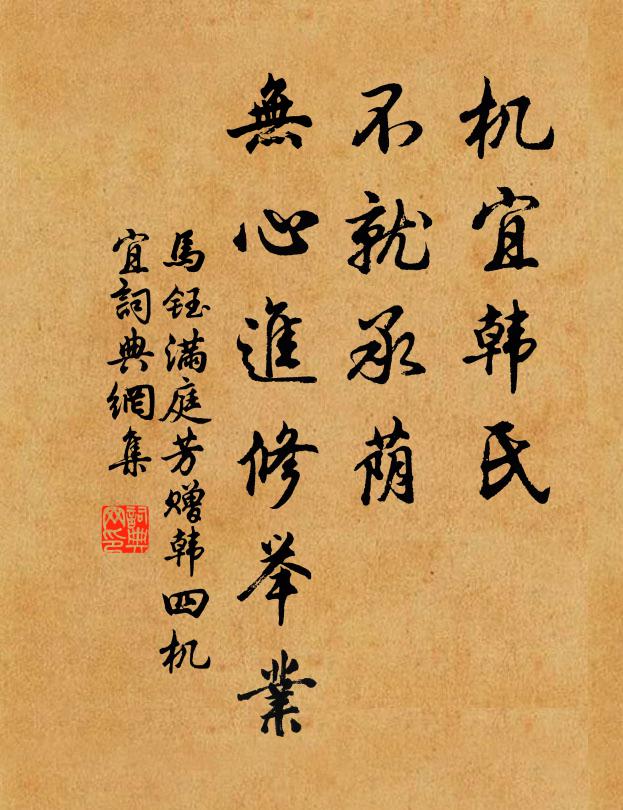 机宜韩氏
不就承荫
無心進修举業
馬钰满庭芳赠韩四机
宜詞典網集
詞典網印